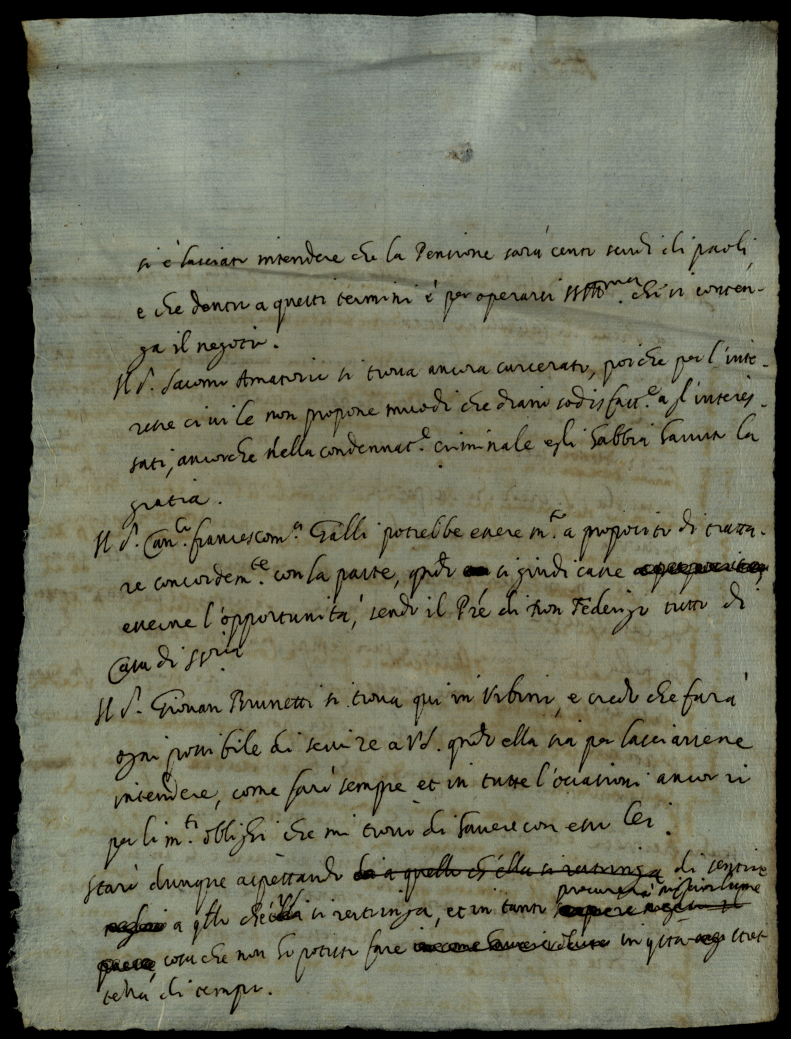 si è lasciato intendere che la Pensione sarà cento scudi di paoli
e che dentro a questi termini è per operarsi che si conten-
ga il negotio.
Il S.r Giacomo Amatorio si trova ancora carcerato, poiche per l'inte-
resse civile non propone modi che diano sodisfatt.e a gl'interes-
sati, ancorche della condennat.e criminale egli habbia havuta la
gratia.
Il S. Can.co francescom.a Galli potrebbe essere m.to a proposito di tratta-
re concordem.te con la parte, qndo si giudicasse
esserne l'opportunità, sendo il Pre di Don Federigo tutto di
Casa di
Il S. Giovan Brunetti si trova qui in Urbino, e credo che farà
ogni possibile di servire a VS. qndo ella sia per lasciarsene
intendere, come farò sempre et in tutte l'occasioni ancor io
per li m.ti oblighi che mi trovo di havere con esso lei.
Starò dunque aspettando da a quello ch'ella si restringa di sentire
a qllo che VS si restringa, et in tanto procurerò
cosa che non ho potuto fare in qsta stret-
tezza di tempo.